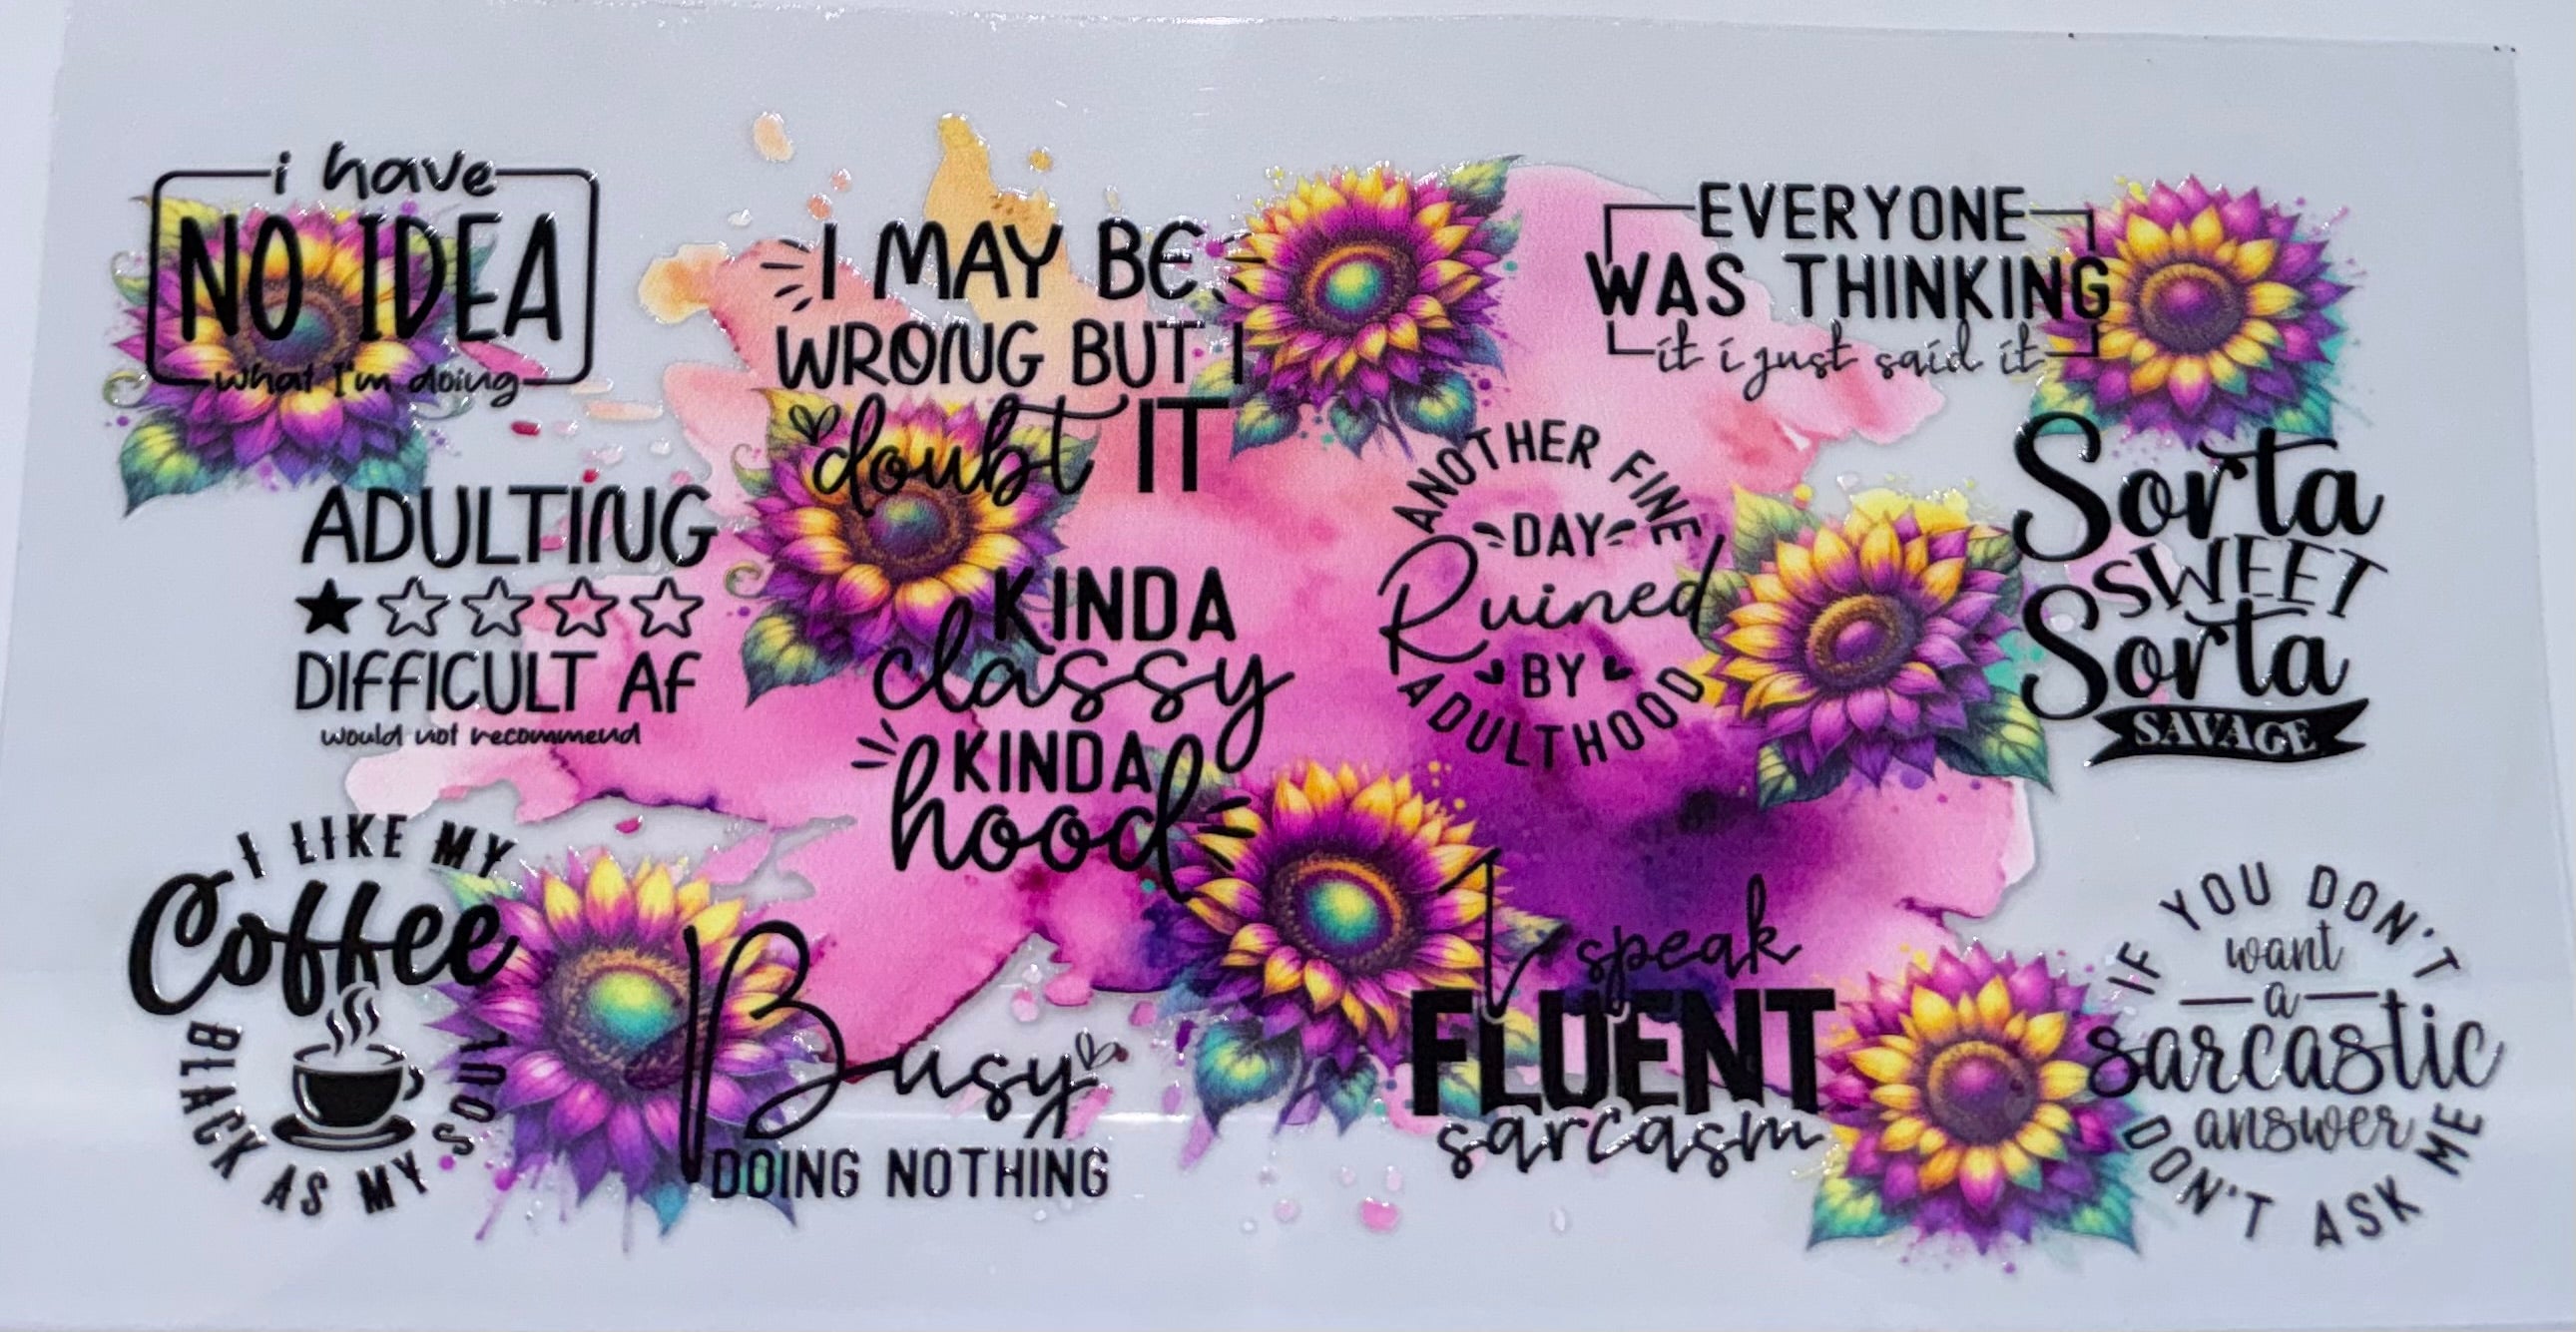 i have
NO IDEA
what I'm doing
I MAY BE
WRONG BUT I
doubt IT
EVERYONE
WAS THINKING
it i just said it
ADULTING
DIFFICULT AF
would not recommend
KINDA
classy
KINDA
hood
ANOTHER FINE
DAY
Ruined
BY
ADULTHOOD
Sorta
SWEET
Sorta
SAVAGE
I LIKE MY
Coffee
BLACK AS MY SOUL
Busy
DOING NOTHING
I speak
FLUENT
sarcasm
IF YOU DON'T
want
a
sarcastic
answer
DON'T ASK ME